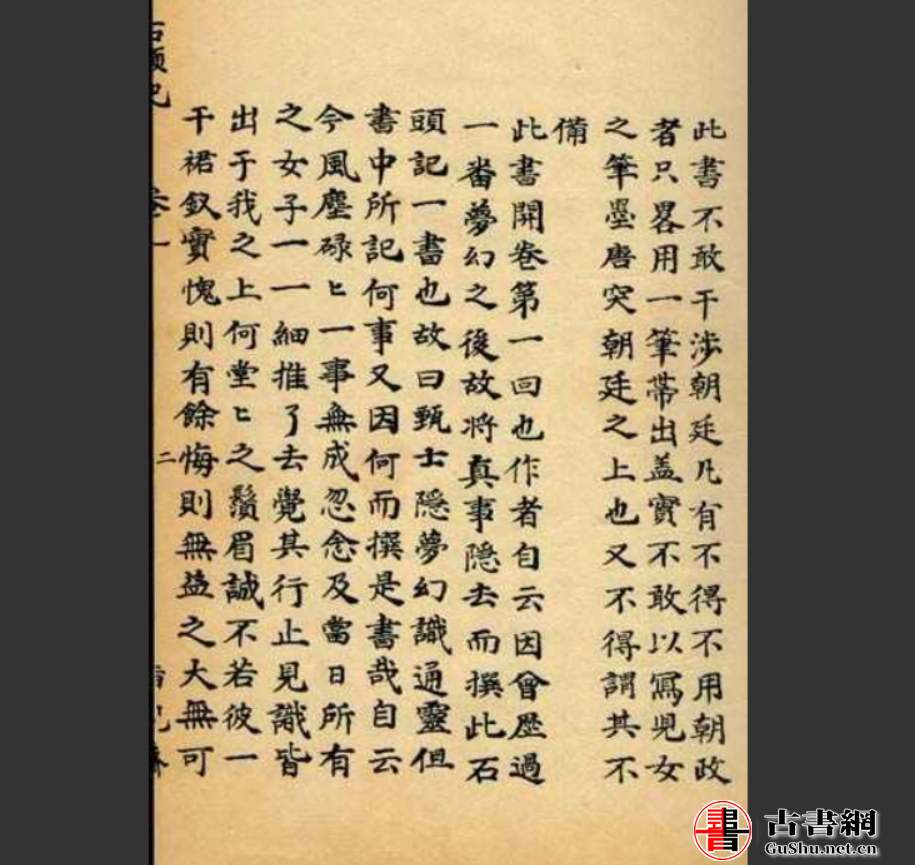 此書不敢干涉朝廷凡有不得不用朝政
者只畧用一筆帶出盖實不敢以寫兒女
之筆墨唐突朝廷之上也又不得謂其不
備
此書開卷第一回也作者自云因曾歷過
一番夢幻之後故將真事隱去而撰此石
頭記一書也故曰甄士隱夢幻識通靈但
書中所記何事又因何而撰是書哉自云
今風塵碌匕一事無成忽念及當日所有
之女子一一細推了去覺其行止見識皆
出于我之上何堂匕之鬚眉誠不若彼一
干裙釵實愧則有餘悔則無益之大無可
石頭記 卷一 二
古書網
GuShu.net.cn